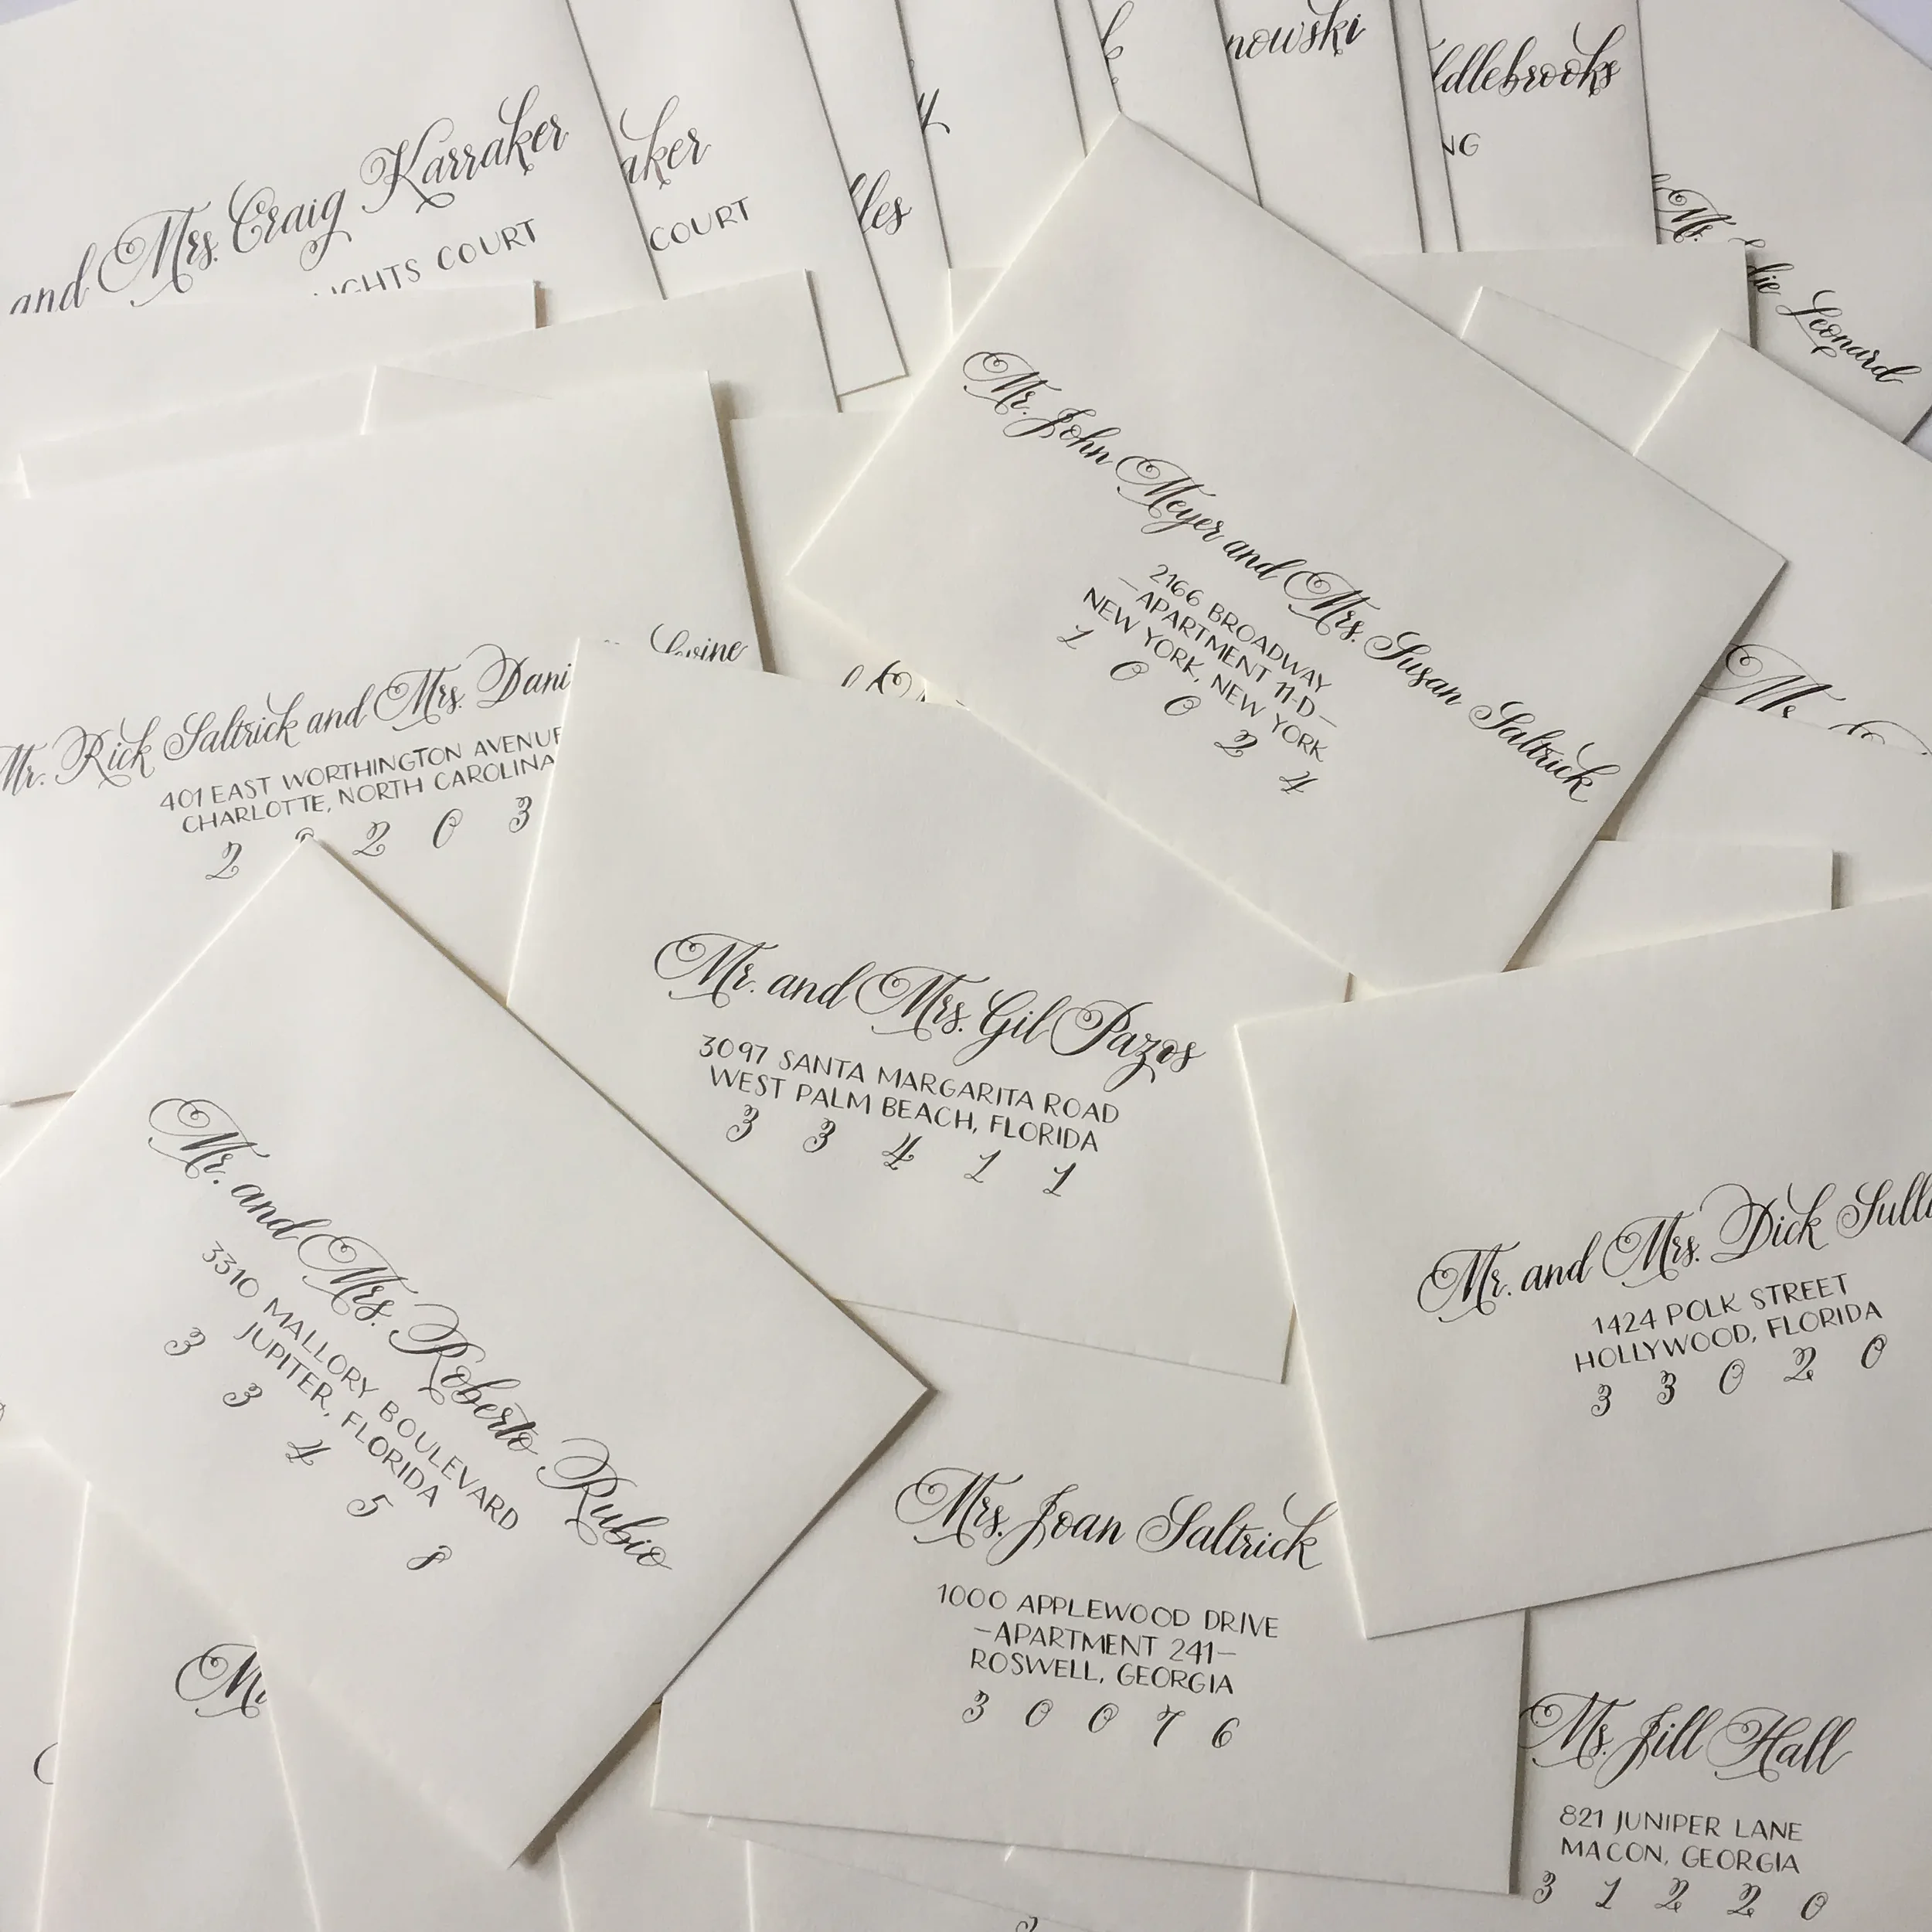 and Mrs. Craig Karraker
COURT
aker
COURT
les
y
nowski
dlebrooks
NG
Ms.
die Leonard
Mr. John Meyer and Mrs. Susan Saltrick
2166 BROADWAY
—APARTMENT 11-D—
NEW YORK, NEW YORK
1 0 0 2 4
Mr. Rick Saltrick and Mrs. Dani
Levine
401 EAST WORTHINGTON AVENUE
CHARLOTTE, NORTH CAROLINA
2 8 2 0 3
Mr. and Mrs. Gil Pazos
3097 SANTA MARGARITA ROAD
WEST PALM BEACH, FLORIDA
3 3 4 1 1
Mr. and Mrs. Dick Sulli
1424 POLK STREET
HOLLYWOOD, FLORIDA
3 3 0 2 0
Mr. and Mrs. Roberto Rubio
3310 MALLORY BOULEVARD
JUPITER, FLORIDA
3 3 4 5 8
Mrs. Joan Saltrick
1000 APPLEWOOD DRIVE
—APARTMENT 241—
ROSWELL, GEORGIA
3 0 0 7 6
Ms. Jill Hall
821 JUNIPER LANE
MACON, GEORGIA
3 1 2 2 0